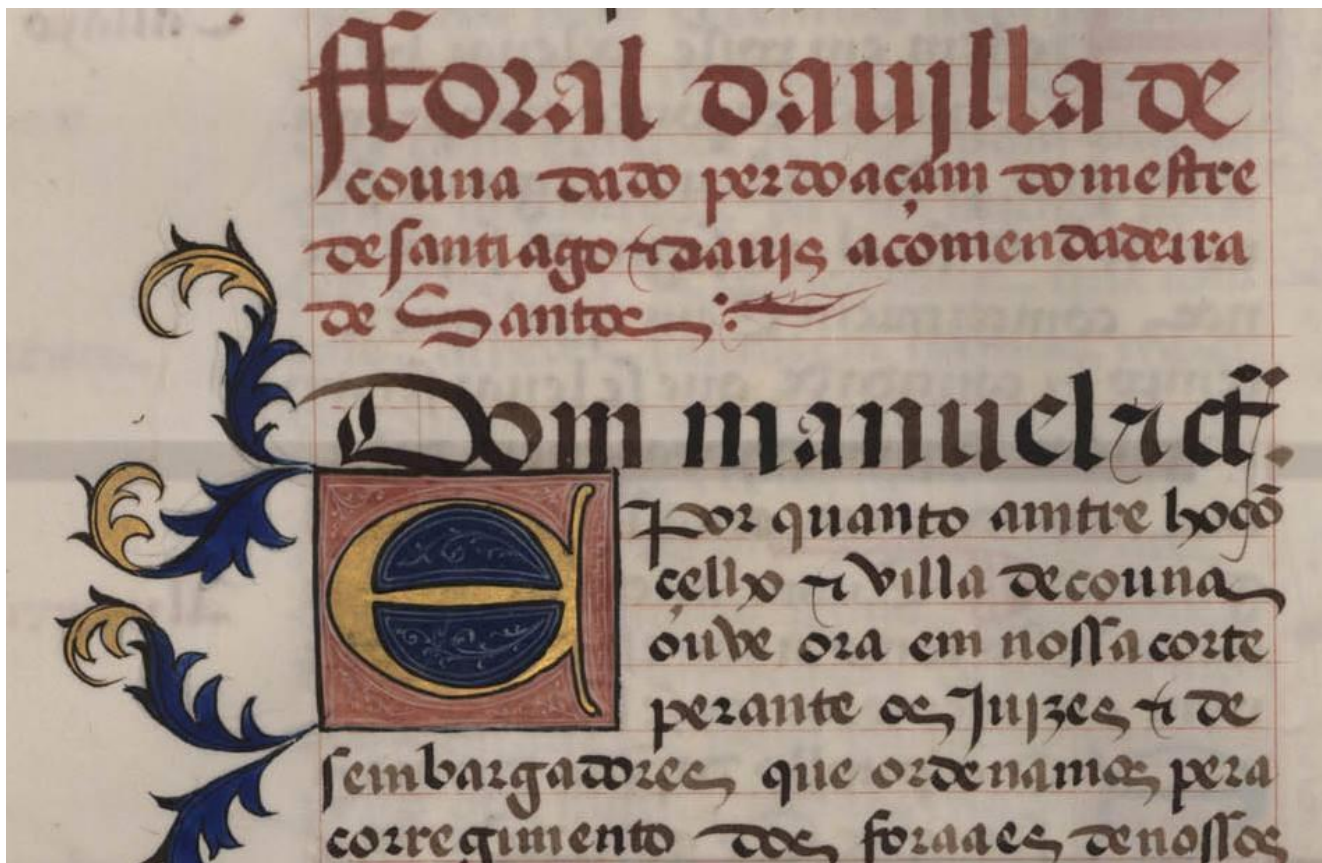 fforal da uilla de
couna dado per doaçam do mestre
de santiago ⁊ dauis a comendadeira
de Santos
Dom manuel ⁊ ct̃.
E Por quanto amtre ho cõ
çelho ⁊ villa de couna
ouve ora em nossa corte
perante os Juizes ⁊ de
sembargadores que ordenamos pera
corregimento dos foraaes de nossos